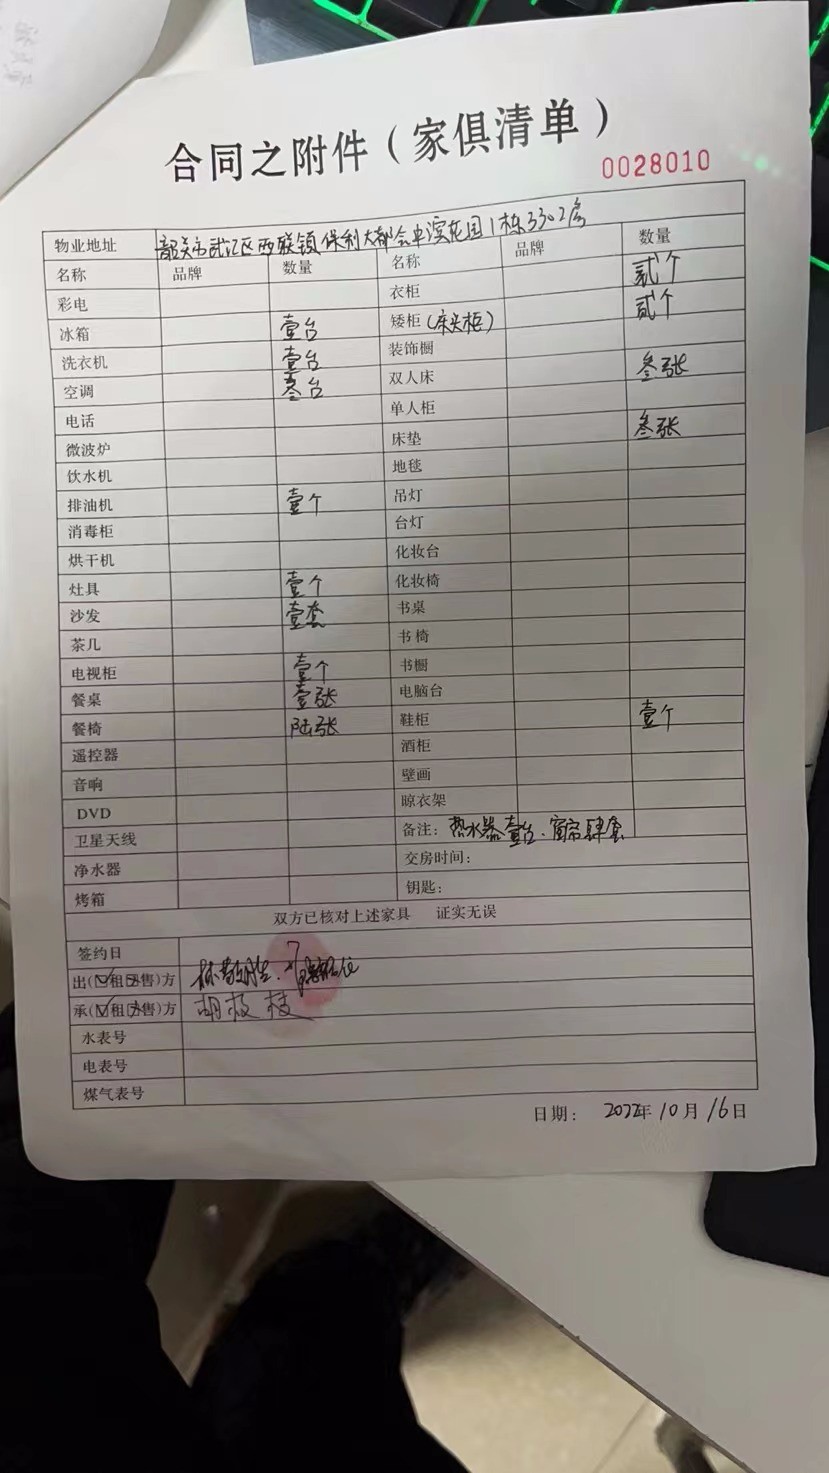 合同之附件（家俱清单）
0028010
物业地址 韶关市武江区西联镇保利大都会卓滨花园1栋3302房
名称 品牌 数量 名称 品牌 数量
彩电 衣柜 贰个
冰箱 壹台 矮柜（床头柜） 贰个
洗衣机 壹台 装饰橱
空调 叁台 双人床 叁张
电话 单人柜
微波炉 床垫 叁张
饮水机 地毯
排油机 壹个 吊灯
消毒柜 台灯
烘干机 化妆台
灶具 壹个 化妆椅
沙发 壹套 书桌
茶几 书椅
电视柜 壹个 书橱
餐桌 壹张 电脑台
餐椅 陆张 鞋柜 壹个
遥控器 酒柜
音响 壁画
DVD 晾衣架
卫星天线 备注：热水器壹台．窗帘肆套
净水器 交房时间：
烤箱 钥匙：
双方已核对上述家具 证实无误
签约日
出(☑租☑售)方
承(☑租☑售)方 胡枝
水表号
电表号
煤气表号
日期： 2022年10月16日